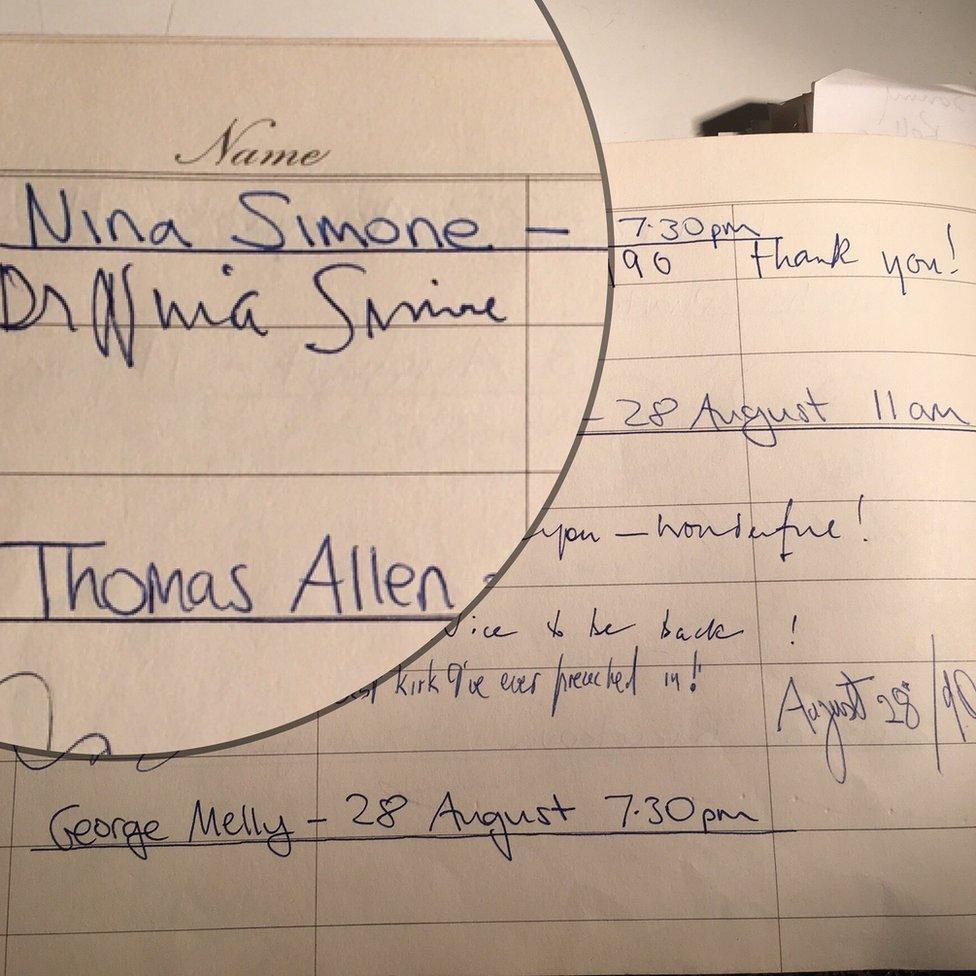 Name
Nina Simone — 7.30pm
Dr Nina Simone 90 thank you!
Thomas Allen - 28 August 11am
you — wonderful!
Nice to be back !
kirk I've ever preached in!
August 28/90
George Melly - 28 August 7.30pm